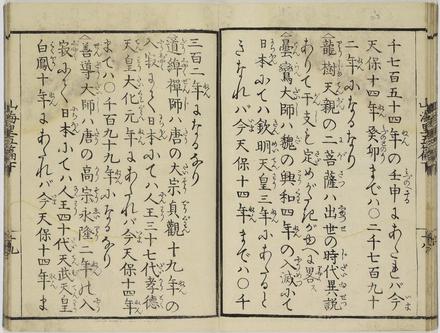 千七百五十四年の壬申にあたれバ今
天保十四年癸卯までハ〇二千七百九十
二年になるなり
龍樹天親の二菩薩ハ出世の時代異説
あり干支を定めがたき故に畧之
曇鸞大師ハ魏の興和四年の入滅にて
日本にてハ欽明天皇三年にあたると
きなれバ今天保十四年までハ〇千
三百二年になるなり
道綽禅師ハ唐の大宗貞觀十九年の
入寂にて日本にてハ人王三十七代孝德
天皇大化元年にあたれバ今天保十四年
までハ〇千百九十九年になるなり
善導大師ハ唐の高宗永隆二年の入
寂にて日本にてハ人王四十代天武天皇
白鳳十年にあたれバ今天保十四年ま